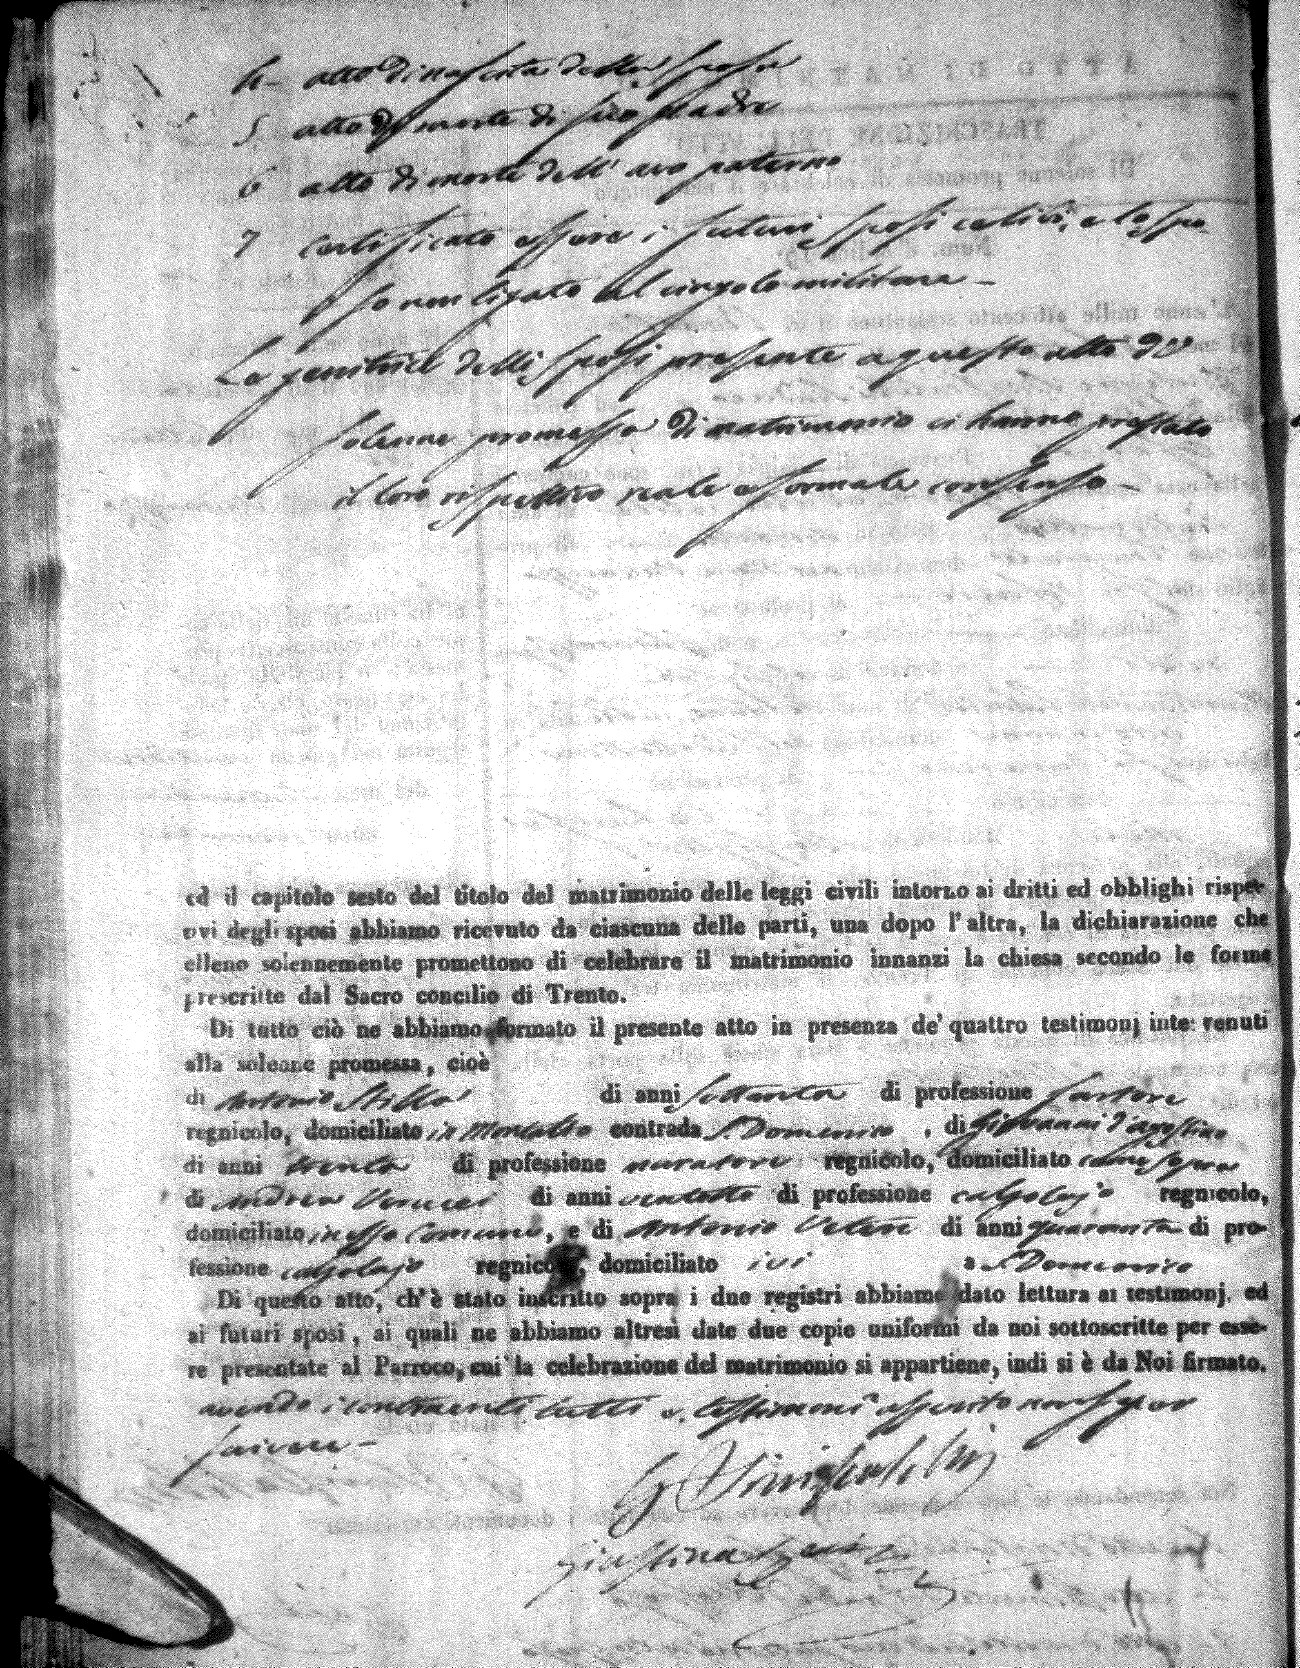 4- atto di nascita della sposa
5 atto di morte di suo Padre
6 atto di morte dell' avo paterno
7 Certificato essere i futuri sposi celibi, e lo spo
so non ligato al cingolo militare -
Le genitrici delli sposi presente a questo atto di
solenne promessa di matrimonio ci hanno prestato
il loro rispettivo reale e formale consenso -
ed il capitolo sesto del titolo del matrimonio delle leggi civili intorno ai dritti ed obblighi rispet-
ivi degli sposi abbiamo ricevuto da ciascuna delle parti, una dopo l'altra, la dichiarazione che
elleno solennemente promettono di celebrare il matrimonio innanzi la chiesa secondo le forme
prescritte dal Sacro concilio di Trento.
Di tutto ciò ne abbiamo formato il presente atto in presenza de' quattro testimonj intervenuti
alla solenne promessa, cioè
di Antonio Stilla di anni settanta di professione sartore
regnicolo, domiciliato in Montalto contrada S. Domenico, di Giovanni d'agostino
di anni trenta di professione muratore regnicolo, domiciliato come sopra
di Andrea di anni ventotto di professione calzolajo regnicolo,
domiciliato in esso Comune, e di Antonio di anni quaranta di pro-
fessione calzolajo regnicolo, domiciliato ivi a S. Domenico
Di questo atto, ch'è stato inscritto sopra i due registri abbiamo dato lettura ai testimonj, ed
ai futuri sposi, ai quali ne abbiamo altresì date due copie uniformi da noi sottoscritte per esse-
re presentate al Parroco, cui la celebrazione del matrimonio si appartiene, indi si è da Noi firmato.
avendo i contraenti tutti e testimoni asserito non saper
scrivere -